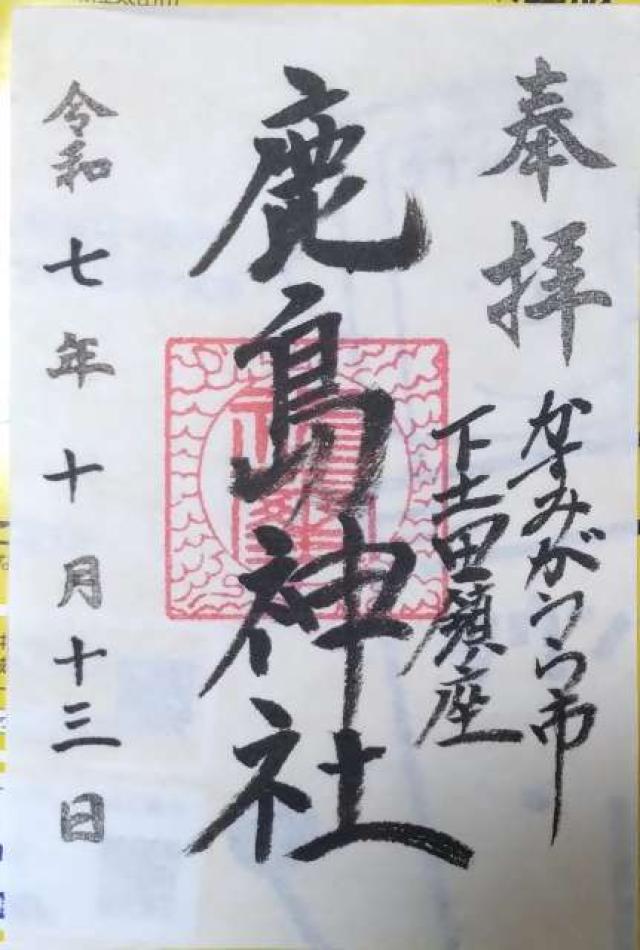 奉拝
かすみがうら市
下土田鎮座
鹿島神社
令和七年十月十三日